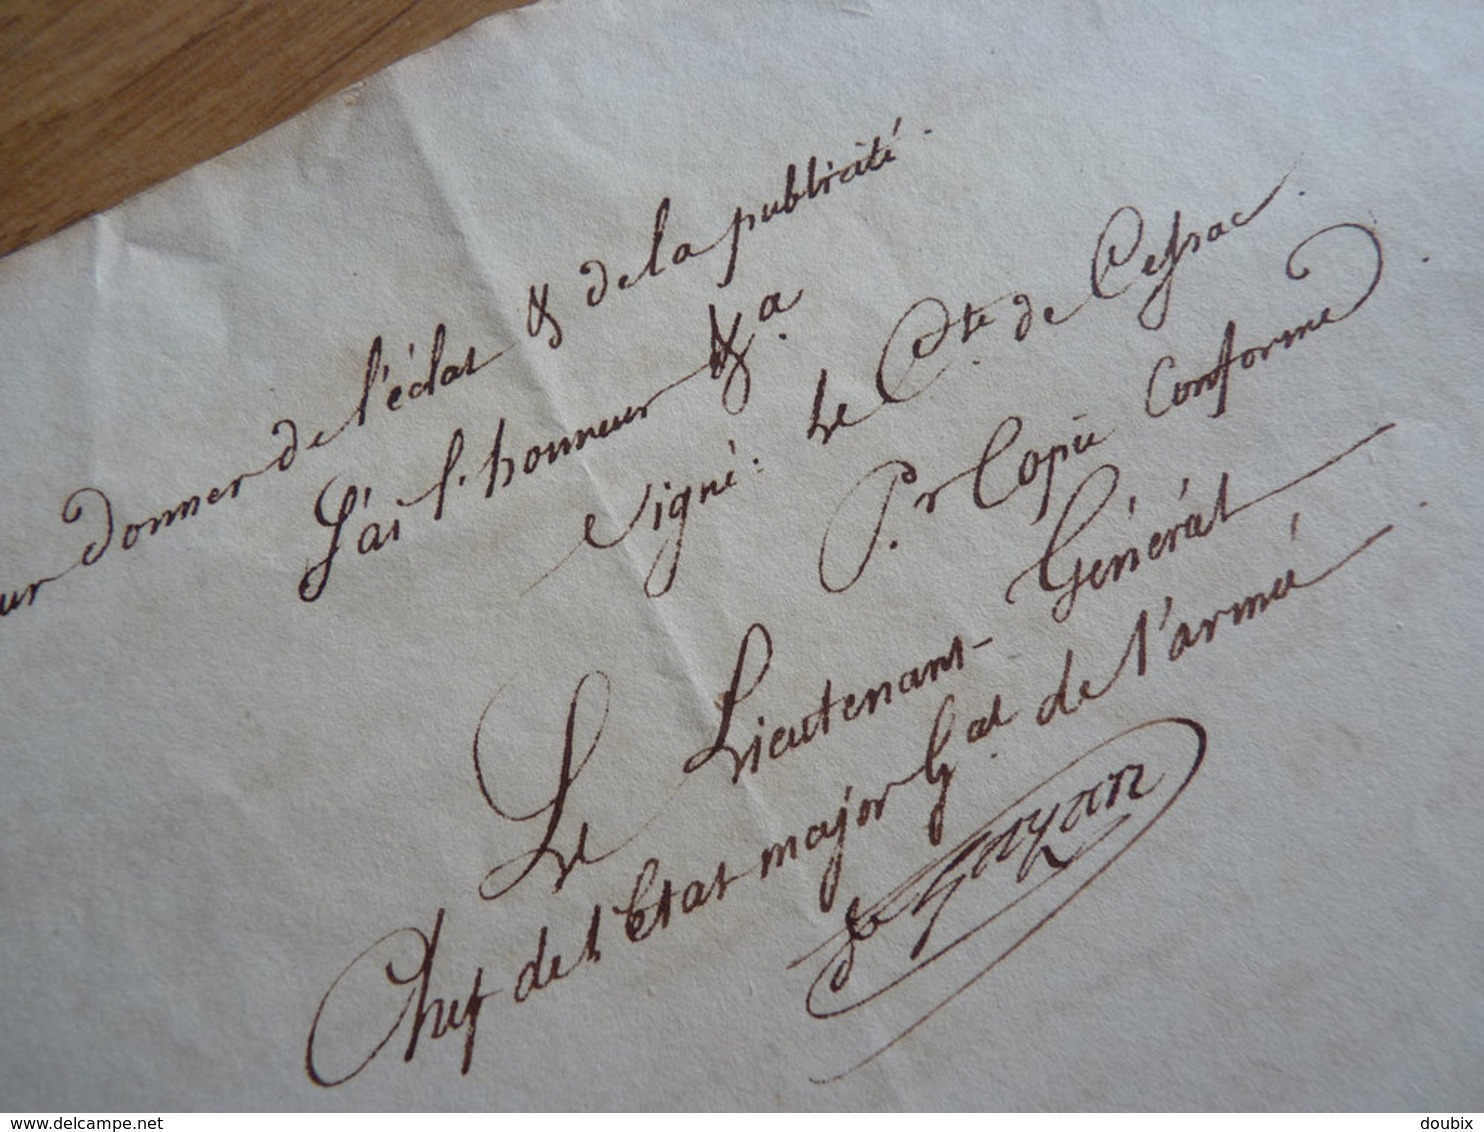 ur donner de l'éclat & de la publicité.
J'ai l'honneur &a.
signé: le Cte. de Cessac.
Pr. Copie Conforme.
Le Lieutenant-Général
Chef de l'Etat major Gal. de l'armée.
de Gazan
delcampe.net
doubix